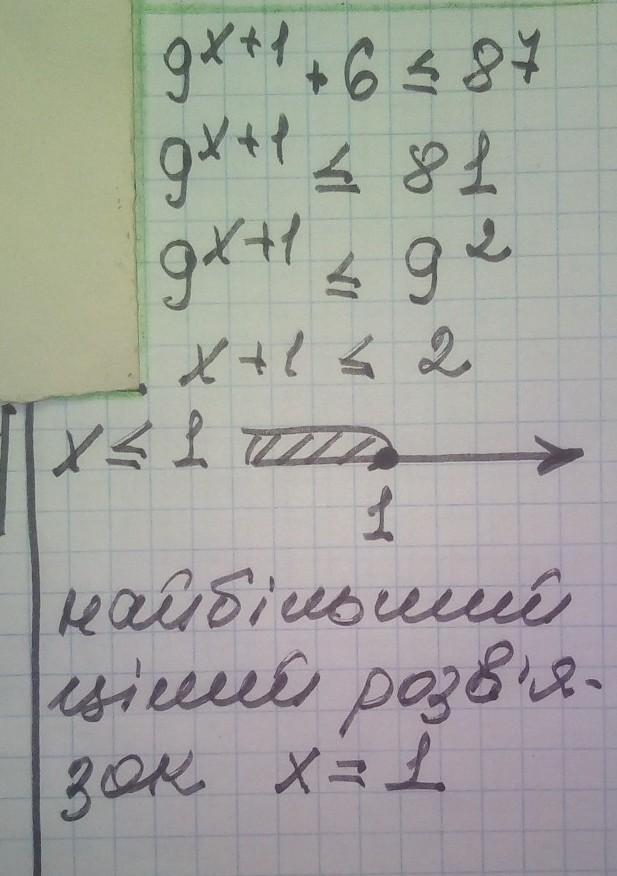 9^{x+1} + 6 ≤ 87
9^{x+1} ≤ 81
9^{x+1} ≤ 9^2
x+1 ≤ 2
x ≤ 1
1
найбільший
цілий розв'я-
зок x = 1